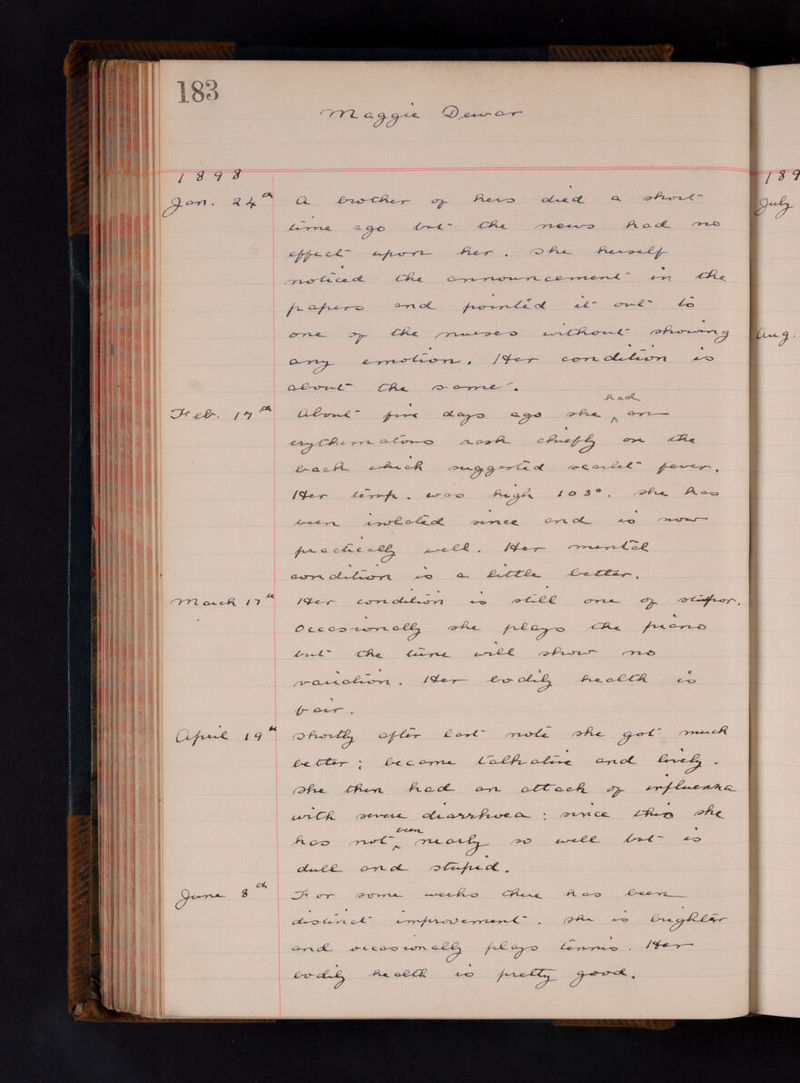 183
Maggie Dewar
1898
Jan. 24th A brother of hers died a short
time ago but the news had no
effect upon her. She herself
noticed the announcement in the
papers and pointed it out to
one of the nurses without showing
any emotion. Her condition is
about the same.
Feb. 17th About five days ago she had an
erythematous rash chiefly on the
back which suggested scarlet fever.
Her temp. was high 103°. She has
been isolated since and is now
practically well. Her mental
condition is a little better.
March 17th Her condition is still one of stupor.
Occasionally she plays the piano
but the tune will show no
variation. Her bodily health is
fair.
April 19th Shortly after last note she got much
better; became talkative and lively.
She then had an attack of influenza
with severe diarrhoea: since this she
has not been nearly so well but is
dull and stupid.
June 8th For some weeks there has been
distinct improvement. She is brighter
and occasionally plays tennis. Her
bodily health is pretty good.
189
July
Aug.